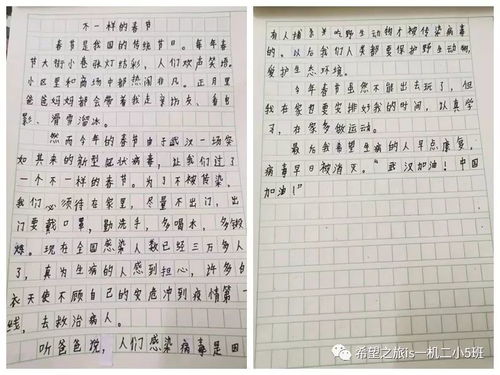 不一样的春节
春节是我国的传统节日。每年春
节大街小巷张灯结彩，人们欢声笑语，
小区里和商场中都热闹非凡。正月里
爸爸妈妈都会带着我走亲访友、看电
影、滑雪溜冰。
然而今年的春节由于武汉一场突
如其来的新型冠状病毒，让我们过了
一个不一样的春节。为了不被传染，
我们必须待在家里，尽量不出门，出
门要戴口罩，勤洗手，多喝水，多锻
炼。现在全国感染人数已经三万多人
了，真为生病的人感到担心，许多白
衣天使不顾自己的安危冲到疫情第一
线，去救治病人。
听爸爸说，人们感染病毒是因
有人捕杀吃野生动物才被传染病毒
的。以后我们人类都要保护野生动物，
爱护生态环境。
今年春节虽然不能出去玩了，但
我在家也要安排好我的时间，认真学
习，在家多做运动。
最后我希望生病的人早点康复，
病毒早日被消灭。“武汉加油！中国
加油！”
希望之旅is一机二小5班